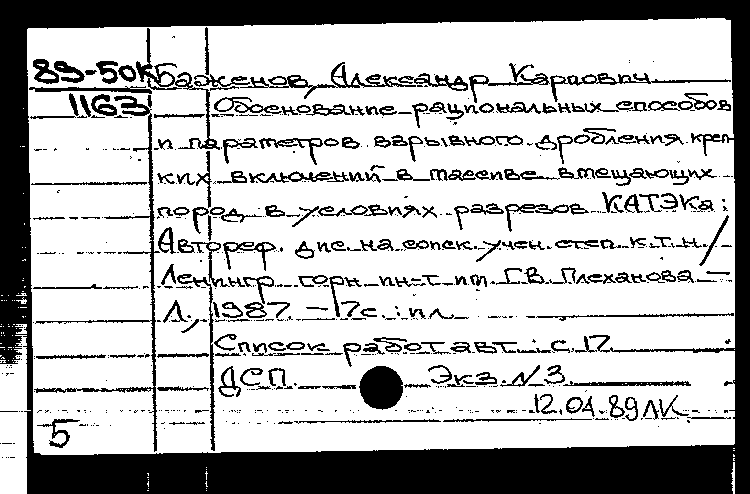 89-50К Баженов, Александр Карпович
1163 Обоснование рациональных способов
и параметров взрывного дробления креп-
ких включений в массиве вмещающих
пород в условиях разрезов КАТЭКа:
Автореф. дис. на соиск. учен. степ. к.т.н./
Ленингр. горн. ин-т им. Г.В. Плеханова —
Л., 1987. — 17с.: ил.
Список работ авт.: с. 17.
ДСП. Экз. N 3.
12.04.89 ЛК
5